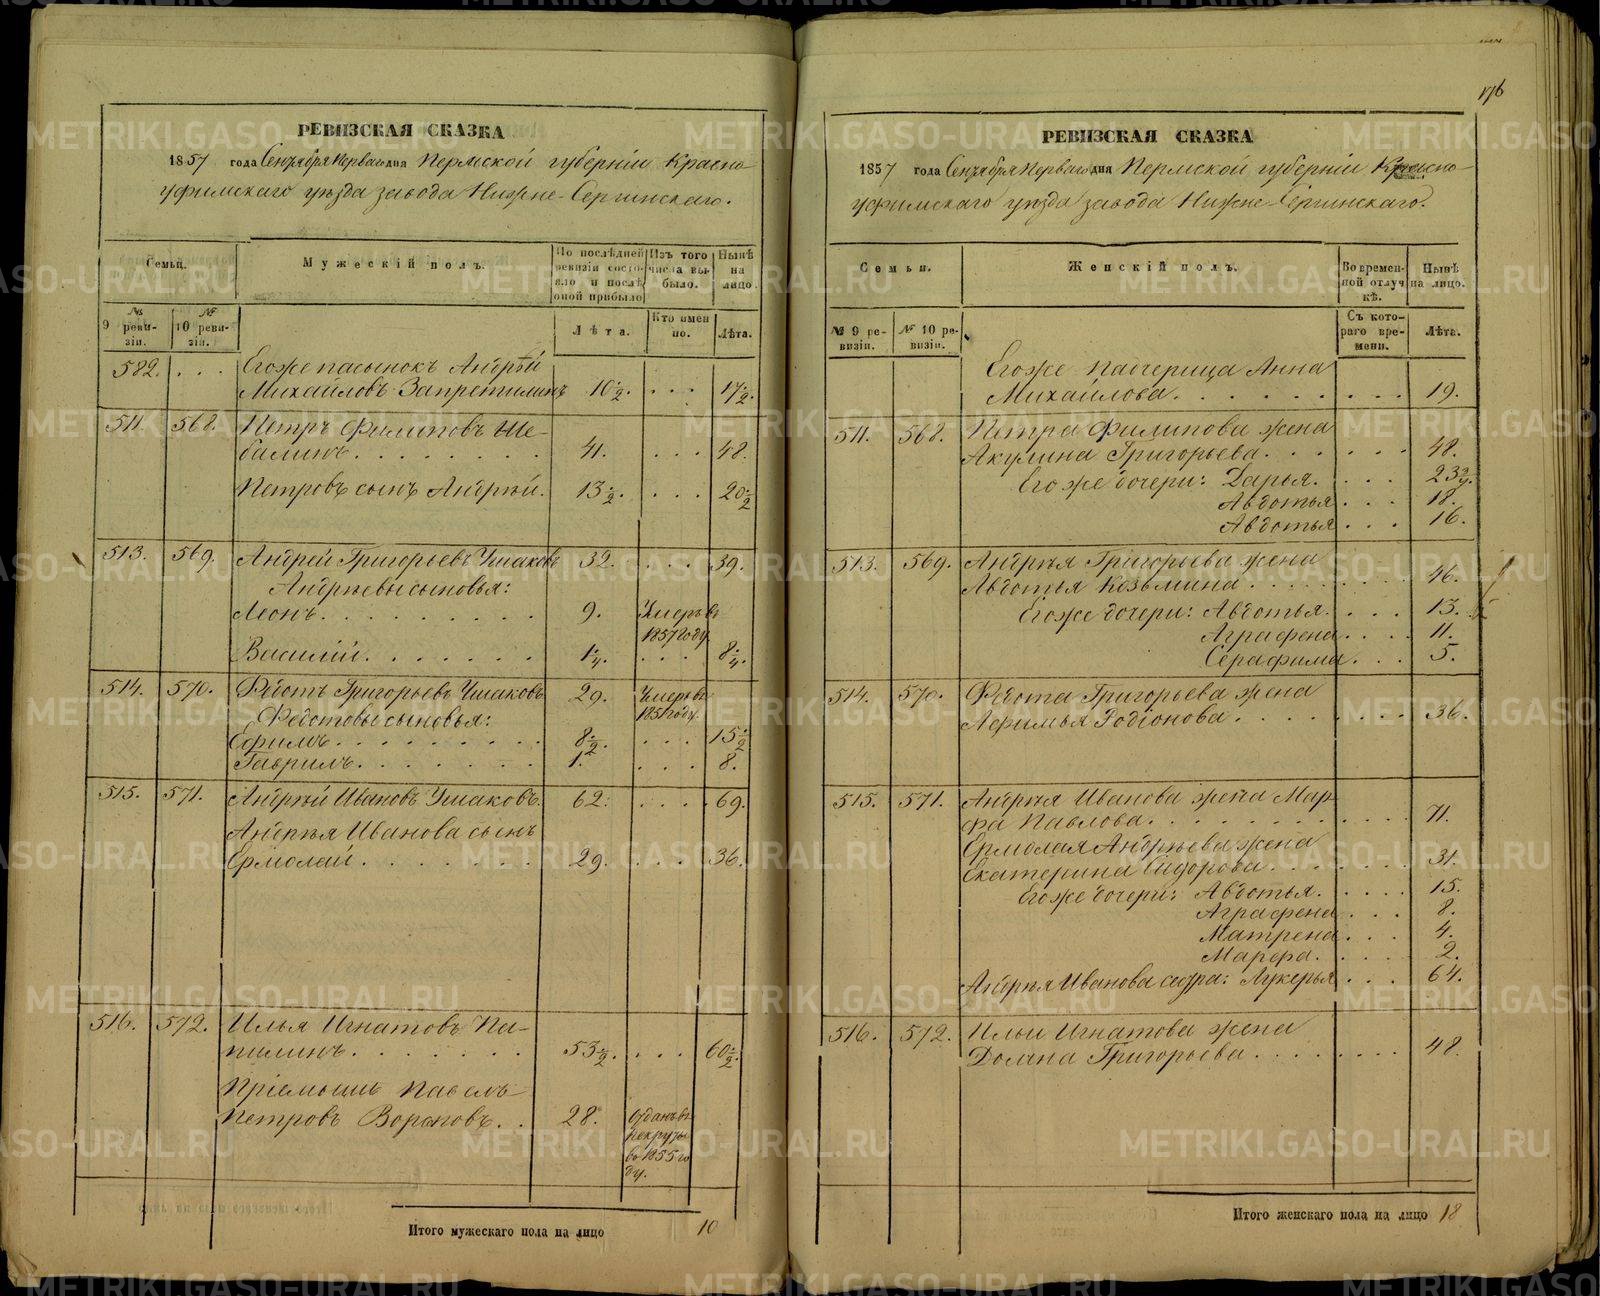 РЕВИЗСКАЯ СКАЗКА
1857 года Сентября Перваго дня Пермской губерніи Красно-
уфимскаго уѣзда завода Нижне-Сергинскаго.
Семьи.
Мужескій полъ.
По послѣдней ревизіи состояло и послѣ оной прибыло
Изъ того числа выбыло.
Нынѣ на лицо.
№ 9 ревизіи.
№ 10 ревизіи.
Лѣта.
Кто именно.
Лѣта.
582. . . . Егоже пасынокъ Андрѣй
Михайловъ Запретилинъ 10 1/2. . . . 17 1/2.
511. 568. Петръ Филиповъ Ше-
балинъ. . . . . . . . 41. . . . 48.
Петровъ сынъ Андрѣй. 13 1/2. . . . 20 1/2
513. 569. Андрей Григорьевъ Ушаковъ 32. . . . 39.
Андрѣевы сыновья:
Леонъ. . . . . . . . . 9. Умеръ въ
1857 году.
Василій. . . . . . . 1/4. . . . 8 1/4.
514. 570. Ѳедотъ Григорьевъ Ушаковъ 29. Умеръ въ
1851 году.
Ѳедотовы сыновья:
Ефимъ. . . . . . . . . 8 1/2. . . . 15 1/2
Гаврилъ. . . . . . . . 1. . . . 8.
515. 571. Андрѣй Ивановъ Ушаковъ. 62. . . . 69.
Андрѣя Иванова сынъ
Ермолай. . . . . . . 29. . . . 36.
516. 572. Илья Игнатовъ Па-
пилинъ. . . . . . . 53 1/2. . . . 60 1/2.
Пріемышъ Павелъ
Петровъ Вороповъ. . . 28. Отданъ въ
рекруты
въ 1855 го
ду.
Итого мужескаго пола на лицо 10
176
РЕВИЗСКАЯ СКАЗКА
1857 года Сентября Перваго дня Пермской губерніи Красно-
уфимскаго уѣзда завода Нижне-Сергинскаго.
Семьи.
Женскій полъ.
Во временной отлучкѣ.
Нынѣ на лицо.
№ 9 ревизіи.
№ 10 ревизіи.
Съ котораго времени.
Лѣта.
Егоже Падчерица Анна
Михайлова. . . . . . . . . . 19.
511. 568. Петра Филипова жена
Акулина Григорьева. . . . . . . 48.
Егоже дочери: Дарья. . . . 23 3/4.
Авдотья . . . 18.
Авдотья . . . 16.
513. 569. Андрѣя Григорьева жена
Авдотья Козьмина . . . . . . . . 46.
Егоже дочери: Авдотья. . . . 13.
Аграфена . . . 11.
Серафима. . . . 5.
514. 570. Ѳедота Григорьева жена
Афимья Родіонова . . . . . . . . 36.
515. 571. Андрѣя Иванова жена Мар-
фа Павлова. . . . . . . . . . . 71.
Ермолая Андрѣева жена
Екатерина Сидорова. . . . . . . 31.
Егоже дочери: Авдотья. . . . 15.
Аграфена . . . 8.
Матрена . . . 4.
Марфа. . . . 2.
Андрѣя Иванова сестра: Лукерья . . . 64.
516. 572. Ильи Игнатова жена
Домна Григорьева . . . . . . . . 48.
Итого женскаго пола на лицо 18
METRIKI.GASO-URAL.RU